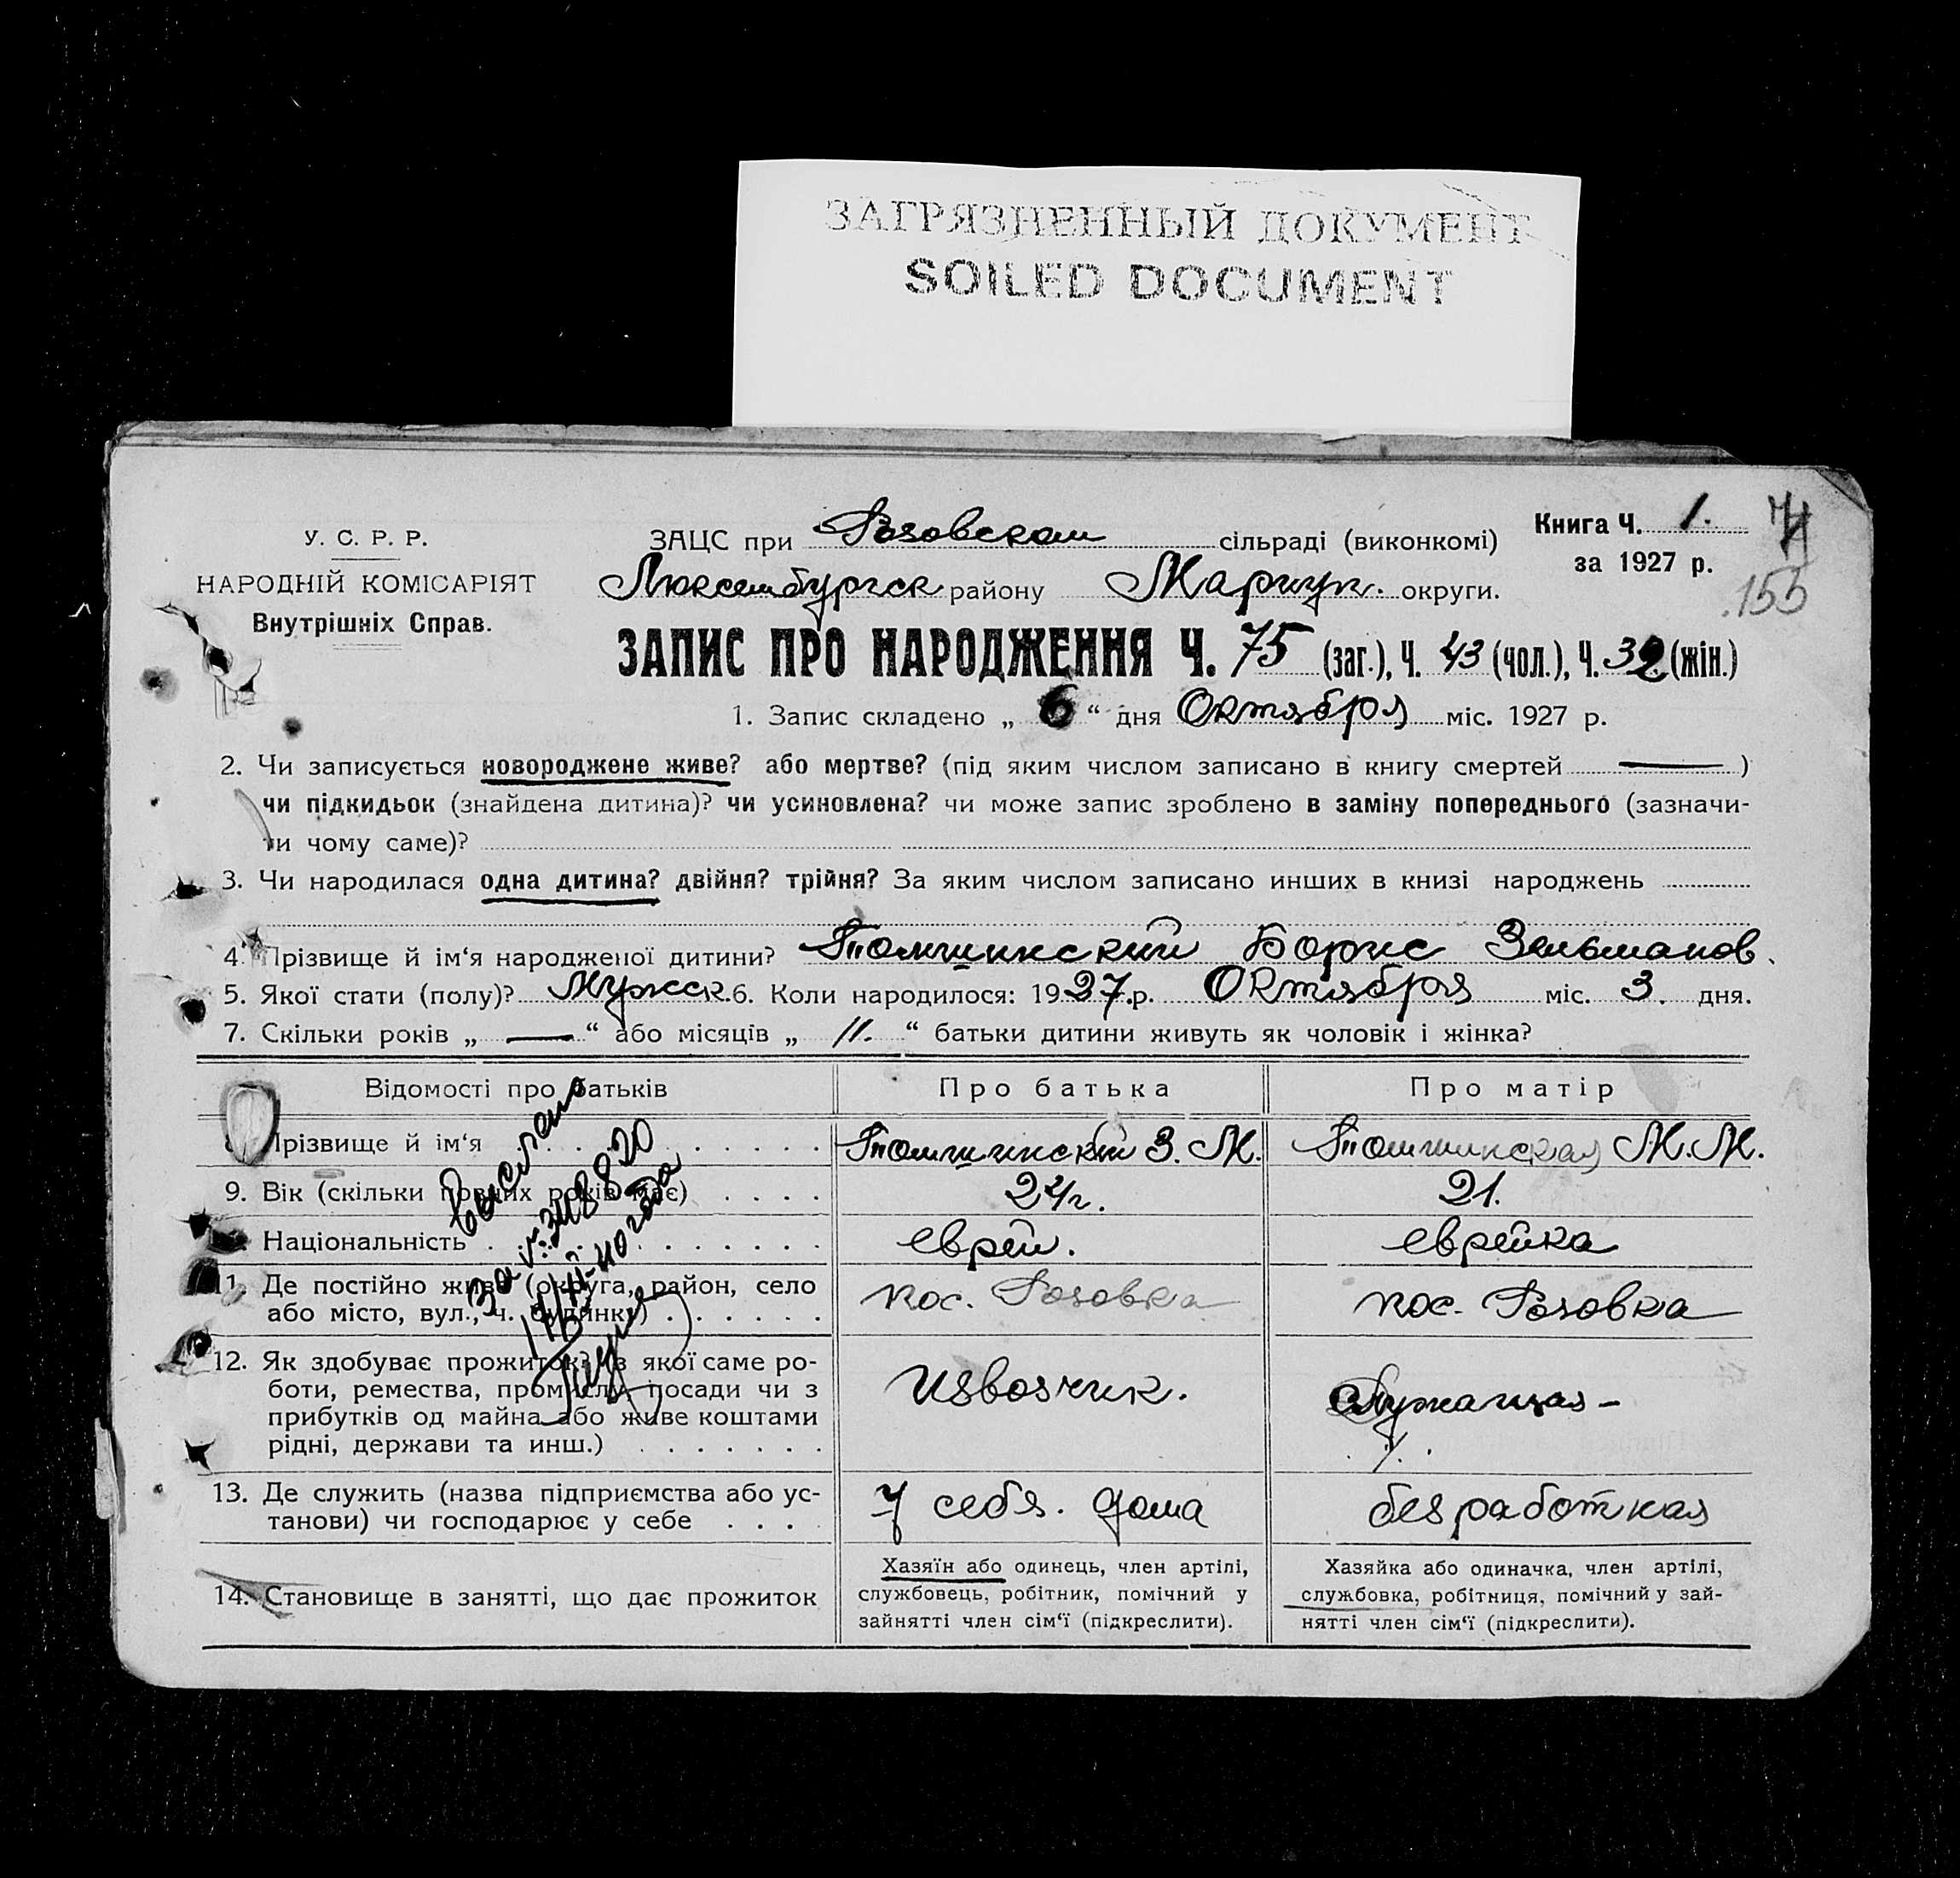 ЗАГРЯЗНЕННЫЙ ДОКУМЕНТ
SOILED DOCUMENT
У. С. Р. Р.
НАРОДНІЙ КОМІСАРІЯТ
Внутрішніх Справ.
ЗАЦС при Розовском сільраді (виконкомі)
Книга Ч. 1.
за 1927 р.
155
Люксембургск району Мариуп. округи.
ЗАПИС ПРО НАРОДЖЕННЯ Ч. 75 (заг.), Ч. 43 (чол.), Ч. 32 (жін.)
1. Запис складено „ 6 “ дня Октября міс. 1927 р.
2. Чи записується новороджене живе? або мертве? (під яким числом записано в книгу смертей — )
чи підкидьок (знайдена дитина)? чи усиновлена? чи може запис зроблено в заміну попереднього (зазначи-
ти чому саме)?
3. Чи народилася одна дитина? двійня? трійня? За яким числом записано инших в книзі народжень
4. Прізвище й ім‘я народженої дитини? Томшинский Борис Зельманов.
5. Якої стати (полу)? Мужск. 6. Коли народилося: 1927. р. Октября міс. 3. дня.
7. Скільки років „ — “ або місяців „ 11. “ батьки дитини живуть як чоловік і жінка?
Відомості про батьків
Про батька
Про матір
8. Прізвище й ім‘я
Томшинский З. М.
Томшинская М. М.
9. Вік (скільки повних років має)
24 г.
21.
10. Національність
еврей.
еврейка
11. Де постійно живе (округа, район, село
або місто, вул., ч. будинку)
пос. Розовка
пос. Розовка
12. Як здобуває прожиток? (з якої саме ро-
боти, ремества, промислу, посади чи з
прибутків од майна або живе коштами
рідні, держави та инш.)
Извозчик.
Служащая –
13. Де служить (назва підприємства або ус-
танови) чи господарює у себе
У себя. дома
безработная
14. Становище в занятті, що дає прожиток
Хазяїн або одинець, член артілі,
службовець, робітник, помічний у
зайнятті член сім‘ї (підкреслити).
Хазяйка або одиначка, член артілі,
службовка, робітниця, помічний у зай-
нятті член сім‘ї (підкреслити).
Выслано